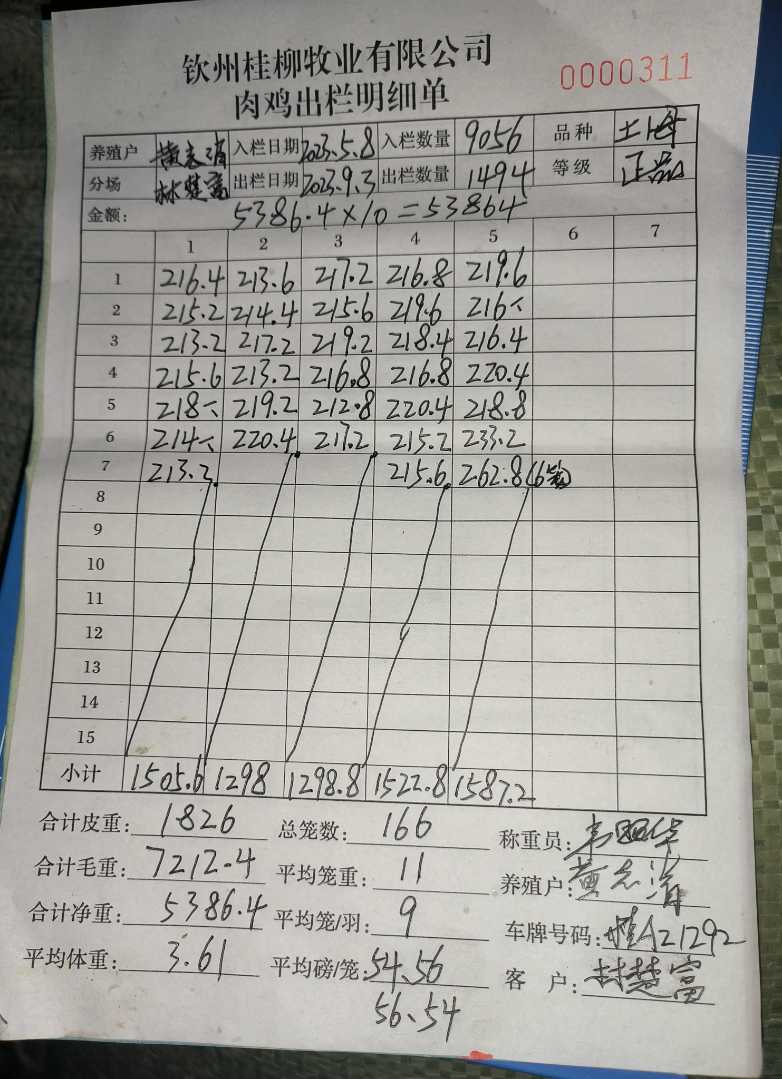 钦州桂柳牧业有限公司
0000311
肉鸡出栏明细单
养殖户 黄志消 入栏日期 2023.5.8 入栏数量 9056 品种
分场 林楚富 出栏日期 2023.9.3 出栏数量 1494 等级 正品
金额: 5386.4×10=53864
1 2 3 4 5 6 7
1 216.4 213.6 217.2 216.8 219.6
2 215.2 214.4 215.6 219.6 216
3 213.2 217.2 219.2 218.4 216.4
4 215.6 213.2 216.8 216.8 220.4
5 218 219.2 212.8 220.4 218.8
6 214 220.4 217.2 215.2 233.2
7 213.2 215.6 262.8
8
9
10
11
12
13
14
15
小计 1505.6 1298 1298.8 1522.8 1587.2
合计皮重: 1826 总笼数: 166 称重员:
合计毛重: 7212.4 平均笼重: 11 养殖户:
合计净重: 5386.4 平均笼/羽: 9 车牌号码: 桂A21292
平均体重: 3.61 平均磅/笼: 54.56 客户: 林楚富
56.54